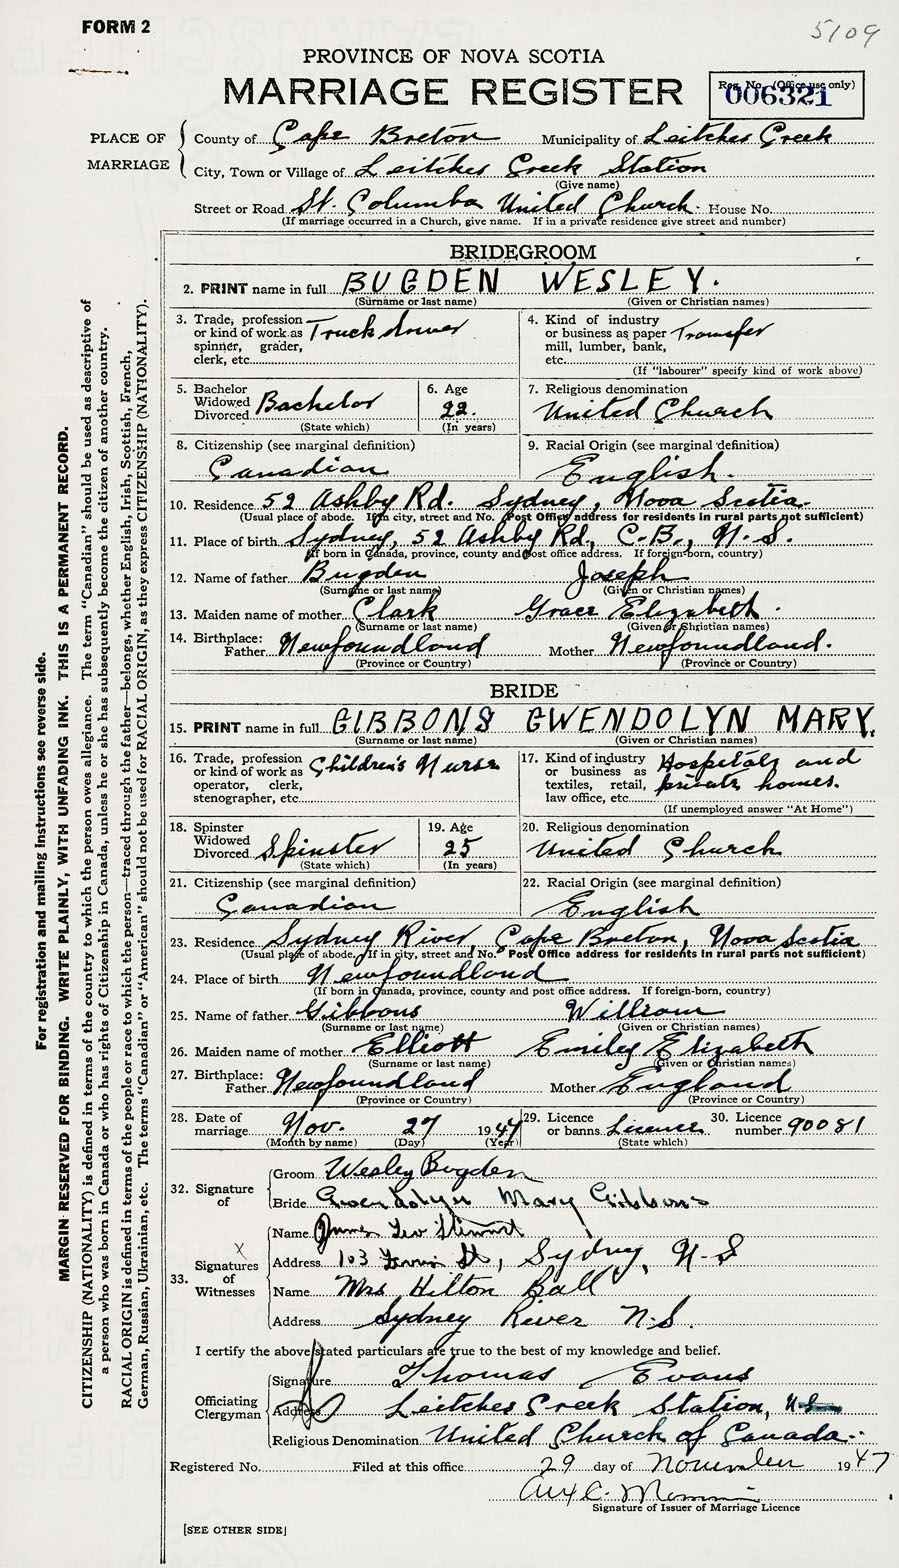 FORM 2
5109
PROVINCE OF NOVA SCOTIA
MARRIAGE REGISTER
Reg. No. (Office use only)
006321
PLACE OF MARRIAGE
County of Cape Breton Municipality of Leitches Creek
City, Town or Village of Leitches Creek Station
(Give name)
Street or Road St. Columba United Church. House No.
(If marriage occurred in a Church, give name. If in a private residence give street and number)
BRIDEGROOM
2. PRINT name in full BUGDEN WESLEY.
(Surname or last name) (Given or Christian names)
3. Trade, profession or kind of work as spinner, grader, clerk, etc. Truck driver
4. Kind of industry or business as paper mill, lumber, bank, etc. Transfer
(If "labourer" specify kind of work above)
5. Bachelor Widowed Divorced Bachelor
(State which)
6. Age 22.
(In years)
7. Religious denomination
United Church
8. Citizenship (see marginal definition)
Canadian
9. Racial Origin (see marginal definition)
English.
10. Residence 52 Ashby Rd. Sydney, Nova Scotia.
(Usual place of abode. If in city, street and No. Post Office address for residents in rural parts not sufficient)
11. Place of birth Sydney, 52 Ashby Rd, C.B., N.S.
(If born in Canada, province, county and post office address. If foreign-born, country)
12. Name of father Bugden Joseph
(Surname or last name) (Given or Christian names)
13. Maiden name of mother Clark Grace Elizabeth.
(Surname or last name) (Given or Christian names)
14. Birthplace: Father Newfoundland Mother Newfoundland.
(Province or Country) (Province or Country)
BRIDE
15. PRINT name in full GIBBONS GWENDOLYN MARY.
(Surname or last name) (Given or Christian names)
16. Trade, profession or kind of work as operator, clerk, stenographer, etc. Children's Nurse
17. Kind of industry or business as textiles, retail, law office, etc. Hospitals and private homes.
(If unemployed answer "At Home")
18. Spinster Widowed Divorced Spinster
(State which)
19. Age 25
(In years)
20. Religious denomination
United Church
21. Citizenship (see marginal definition)
Canadian
22. Racial Origin (see marginal definition)
English
23. Residence Sydney River, Cape Breton, Nova Scotia
(Usual place of abode. If in city, street and No. Post Office address for residents in rural parts not sufficient)
24. Place of birth Newfoundland
(If born in Canada, province, county and post office address. If foreign-born, country)
25. Name of father Gibbons William
(Surname or last name) (Given or Christian names)
26. Maiden name of mother Elliott Emily Elizabeth
(Surname or last name) (Given or Christian names)
27. Birthplace: Father Newfoundland Mother England
(Province or Country) (Province or Country)
28. Date of marriage Nov. 27 1947
(Month by name) (Day) (Year)
29. Licence or banns Licence
(State which)
30. Licence number 90081
32. Signature of
Groom Wesley Bugden
Bride Gwendolyn Mary Gibbons
33. Signatures of Witnesses
X
Name James Leo Stewart
Address 103 St, Sydney, N-S
Name Mrs Hilton Ball
Address Sydney River N.S.
I certify the above stated particulars are true to the best of my knowledge and belief.
Officiating Clergyman
Signature Thomas Evans
Address Leitches Creek Station, N.S.
Religious Denomination United Church of Canada.
Registered No. Filed at this office 29 day of November 1947
Signature of Issuer of Marriage Licence
[SEE OTHER SIDE]
For registration and mailing instructions see reverse side.
MARGIN RESERVED FOR BINDING. WRITE PLAINLY, WITH UNFADING INK. THIS IS A PERMANENT RECORD.
CITIZENSHIP (NATIONALITY) is defined in terms of the country to which the person owes allegiance. The term "Canadian" should be used as descriptive of
a person who was born in Canada or who has rights of Citizenship in Canada, unless he or she has subsequently become the citizen of another country.
RACIAL ORIGIN is defined in terms of the people or race to which the person—traced through the father—belongs, whether English, Irish, Scottish, French,
German, Russian, Ukrainian, etc. The terms "Canadian" or "American" should not be used for RACIAL ORIGIN, as they express CITIZENSHIP (NATIONALITY).